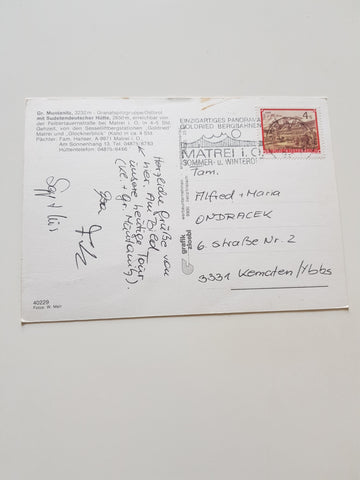 Gr. Muntanitz, 3232 m - Granatspitzgruppe/Osttirol
mit Sudetendeutscher Hütte, 2650 m, erreichbar von
der Felbertauernstraße bei Matrei i. O. in 4-5 Std.
Gehzeit, von den Sesselliftbergstationen "Goldried"
Matrei und "Glocknerblick" (Kals) in ca. 4 Std.
Pächter: Fam. Hanser A-9971 Matrei i. O.
Am Sonnenhang 13, Tel. 04875/6783
Hüttentelefon: 04875/6466
Herzliche Grüße von
hier. Am Bild
unsere heutige Tour
(Kl + Gr. Muntanitz).
40229
Fotos: W. Mair
EINZIGARTIGES PANORAMA
GOLDRIED-BERGBAHNEN
MATREI i. O.
SOMMER- u. WINTERD
4 S
Fam.
Alfred + Maria
ONDRACEK
6. Straße Nr. 2
3331 Kematen/Ybbs